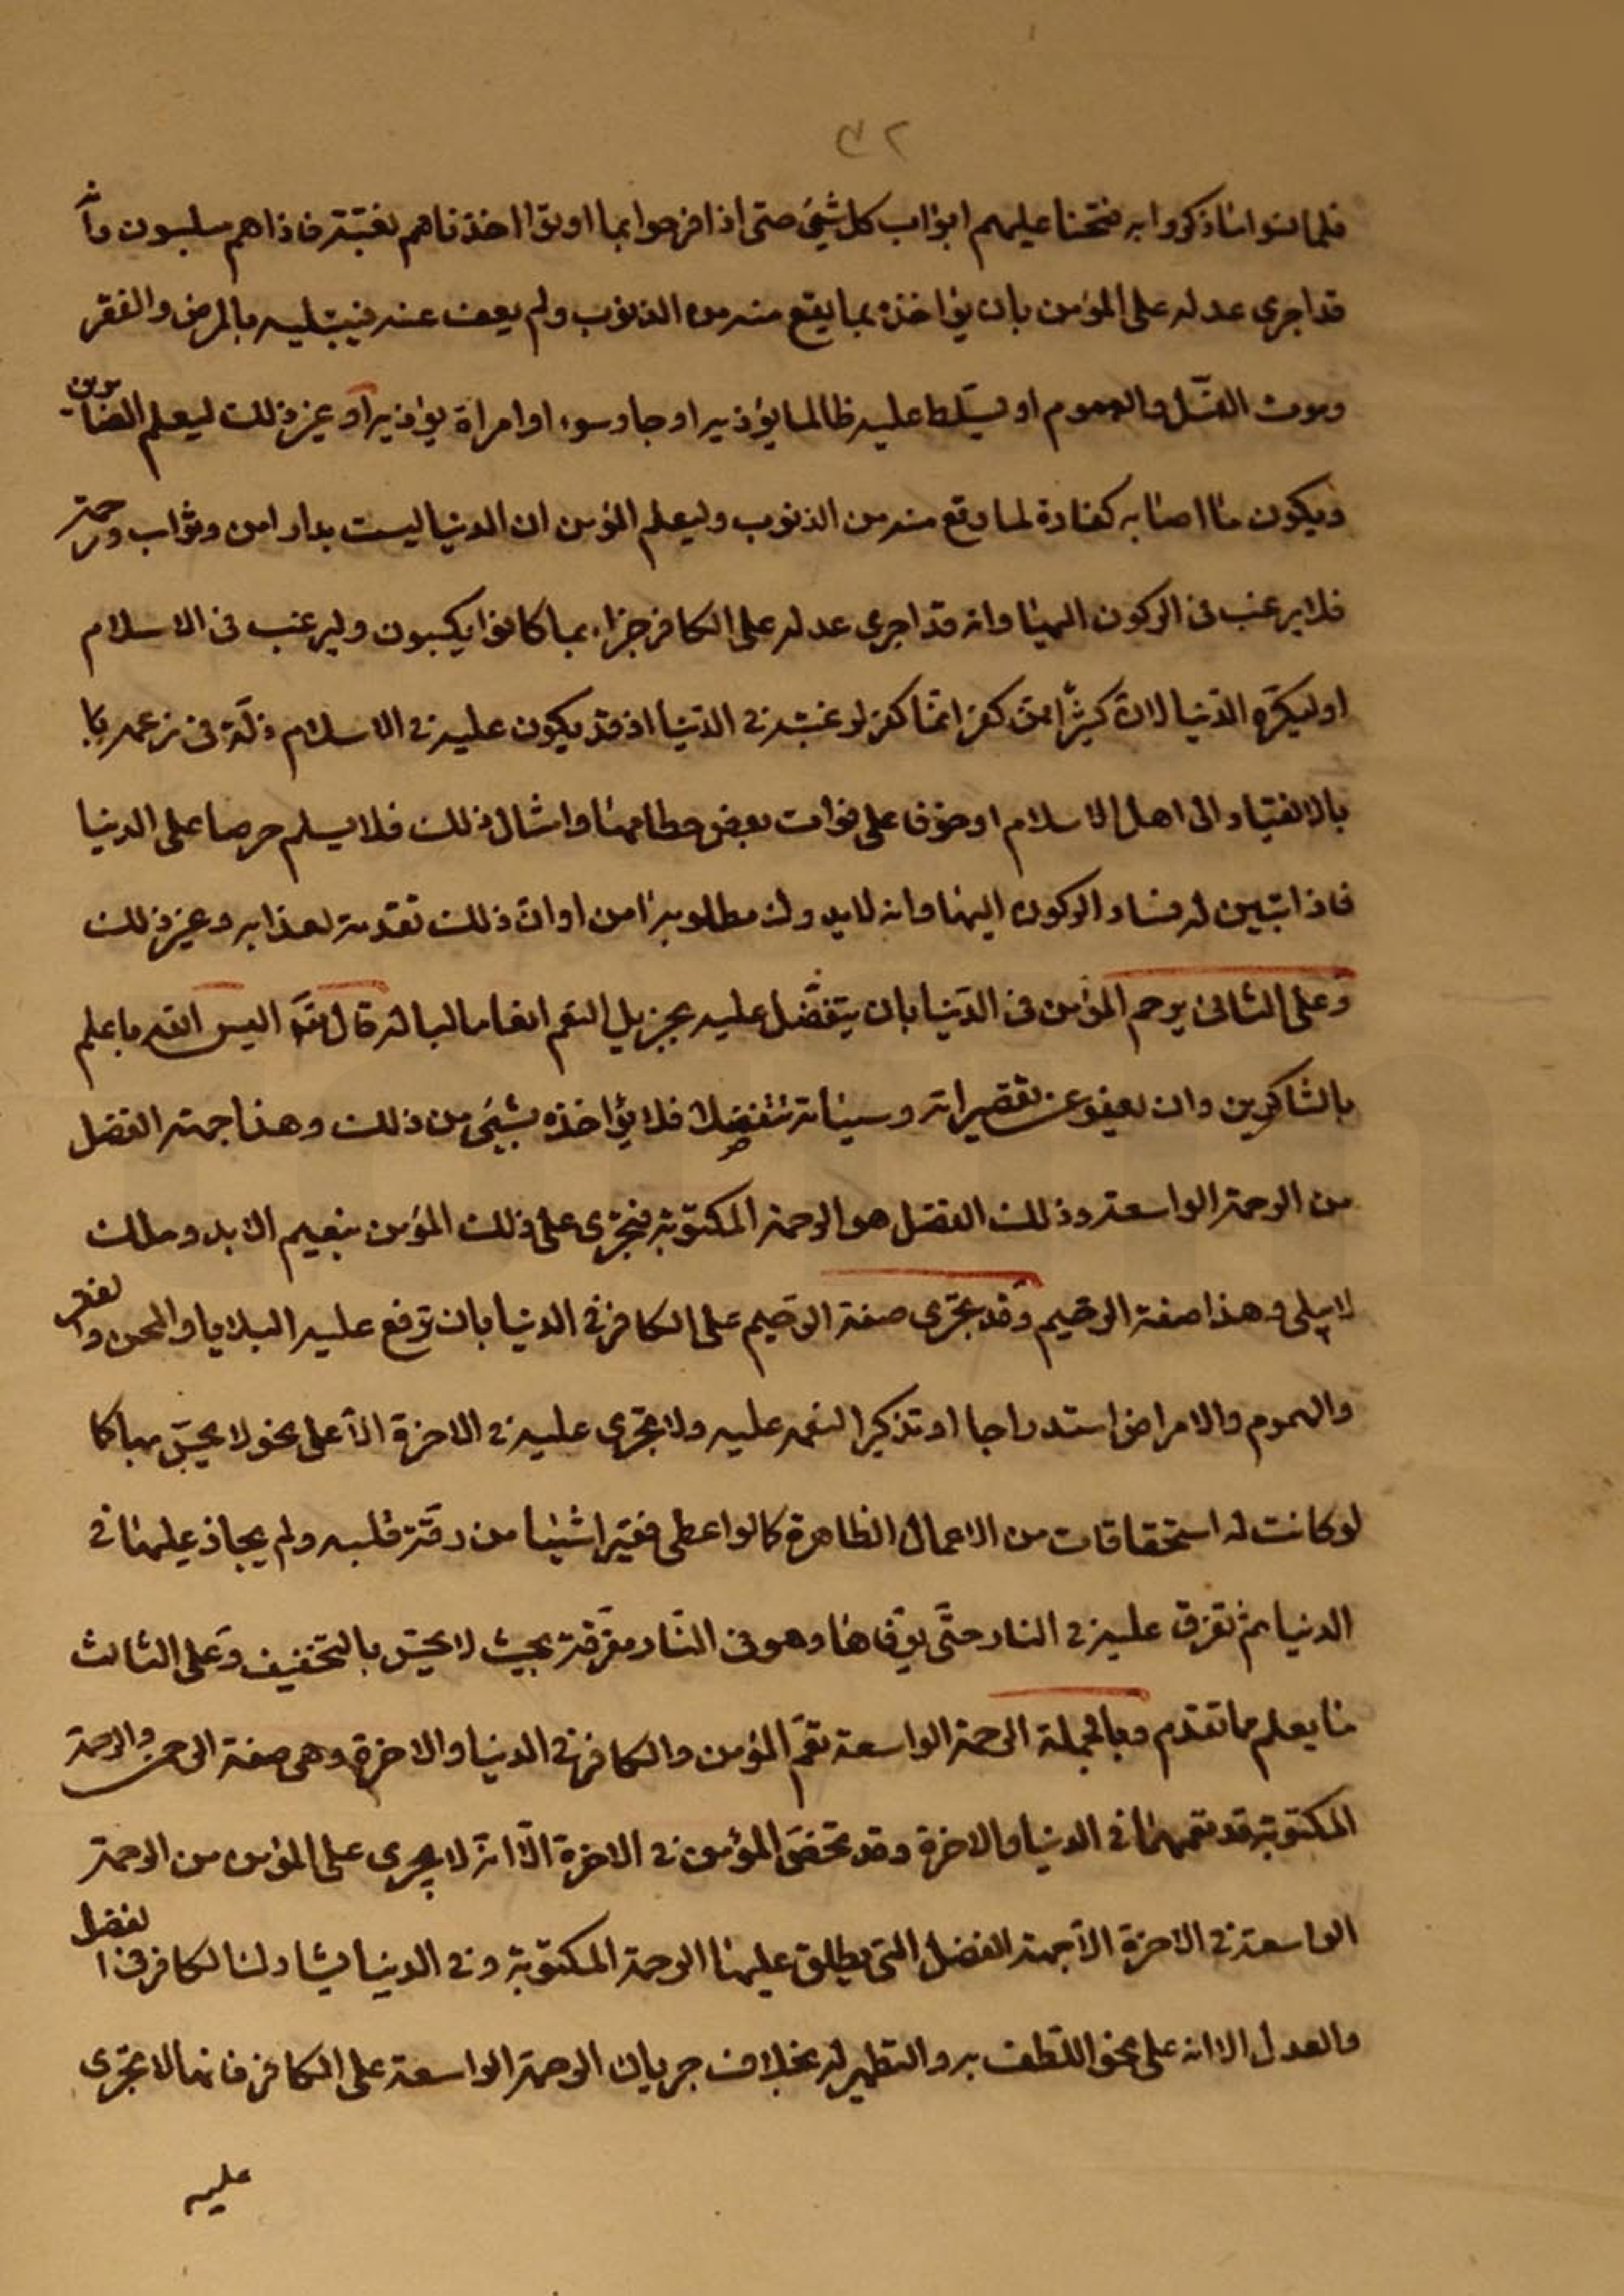 ٤٢
فلما نسوا ما ذكروا به فتحنا عليهم ابواب كل شيئ حتى اذا فرحوا بما اوتوا اخذناهم بغتة فاذاهم مبلسون وانه
قد اجرى عدله على المؤمن بان يؤاخذه بما يقع منه من الذنوب ولم يعف عنه فيبتليه بالمرض والفقر
وموت والهموم او يسلط عليه ظالما يؤذيه او جار سوء او امراة يؤذيه او غير ذلك ليعلم الصابرين
ويكون ما اصابه كفارة لما وقع منه من الذنوب وليعلم المؤمن ان الدنيا ليست بدار امن وثواب ورحمة
فلا يرغب فى الركون اليها وانه قد اجرى عدله على الكافر جزاء بما كانوا يكسبون وليرغب فى الاسلام
او ليكره الدنيا لان كثيرا ممن كفر انما كفر لرغبته في الدنيا اذ قد يكون عليه في الاسلام ذلة فى زعمه يا
بالانقياد الى اهل الاسلام او خوفا على فوات بعض حطامها وامثال ذلك فلا يسلم حرصا على الدنيا
فاذا تبين له فساد الركون اليها وانه لا يدرك مطلوبه امن او ان ذلك تقدمة لعذابه وغير ذلك
وعلى الثانى يرحم المؤمن فى الدنيا بان يتفضل عليه بجزيل النعم اتفا ما لباله قال تعا اليس الله باعلم
بالشاكرين وان يعفو عن تقصيراته وسيئاته تفضلا فلا يؤاخذه بشيئ من ذلك وهذا جهة الفضل
من الرحمة الواسعة وذلك الفضل هو الرحمة المكتوبة فيجرى على ذلك المؤمن بنعيم الابد وملك
لا يبلى وهذا صفة الرحيم وقد تجرى صفة الرحيم على الكافر في الدنيا بان ترفع عليه البلايا والمحن والفقر
والهموم والامراض استدراجا او تذكيرا لنعمه عليه ولا تجرى عليه في الاخرة الا على نحو لا يحس بها كما
لو كانت له استحقاقات من الاعمال الظاهرة كما لو اعطى فقيرا شيئا من رقة قلبه ولم يجاز عليها في
الدنيا ثم تفرق عليه في النار حتى يوفاها وهو فى النار مفرقة بحيث لا يحس بالتخفيف وعلى الثالث
ما يعلم مما تقدم وبالجملة الرحمة الواسعة تعم المؤمن والكافر في الدنيا والاخرة وهى صفة الرحمن والرحمة
المكتوبة قد تعمهما في الدنيا والاخرة وقد تخص المؤمن في الاخرة الا انه لا يجرى على المؤمن من الرحمة
الواسعة في الاخرة الا جهة الفضل التى يطلق عليها الرحمة المكتوبة وفي الدنيا يشارك الكافر في الفضل
والعدل الا انه على نحو اللطف به والتطهير له بخلاف جريان الرحمة الواسعة على الكافر فانها لا تجرى
عليه